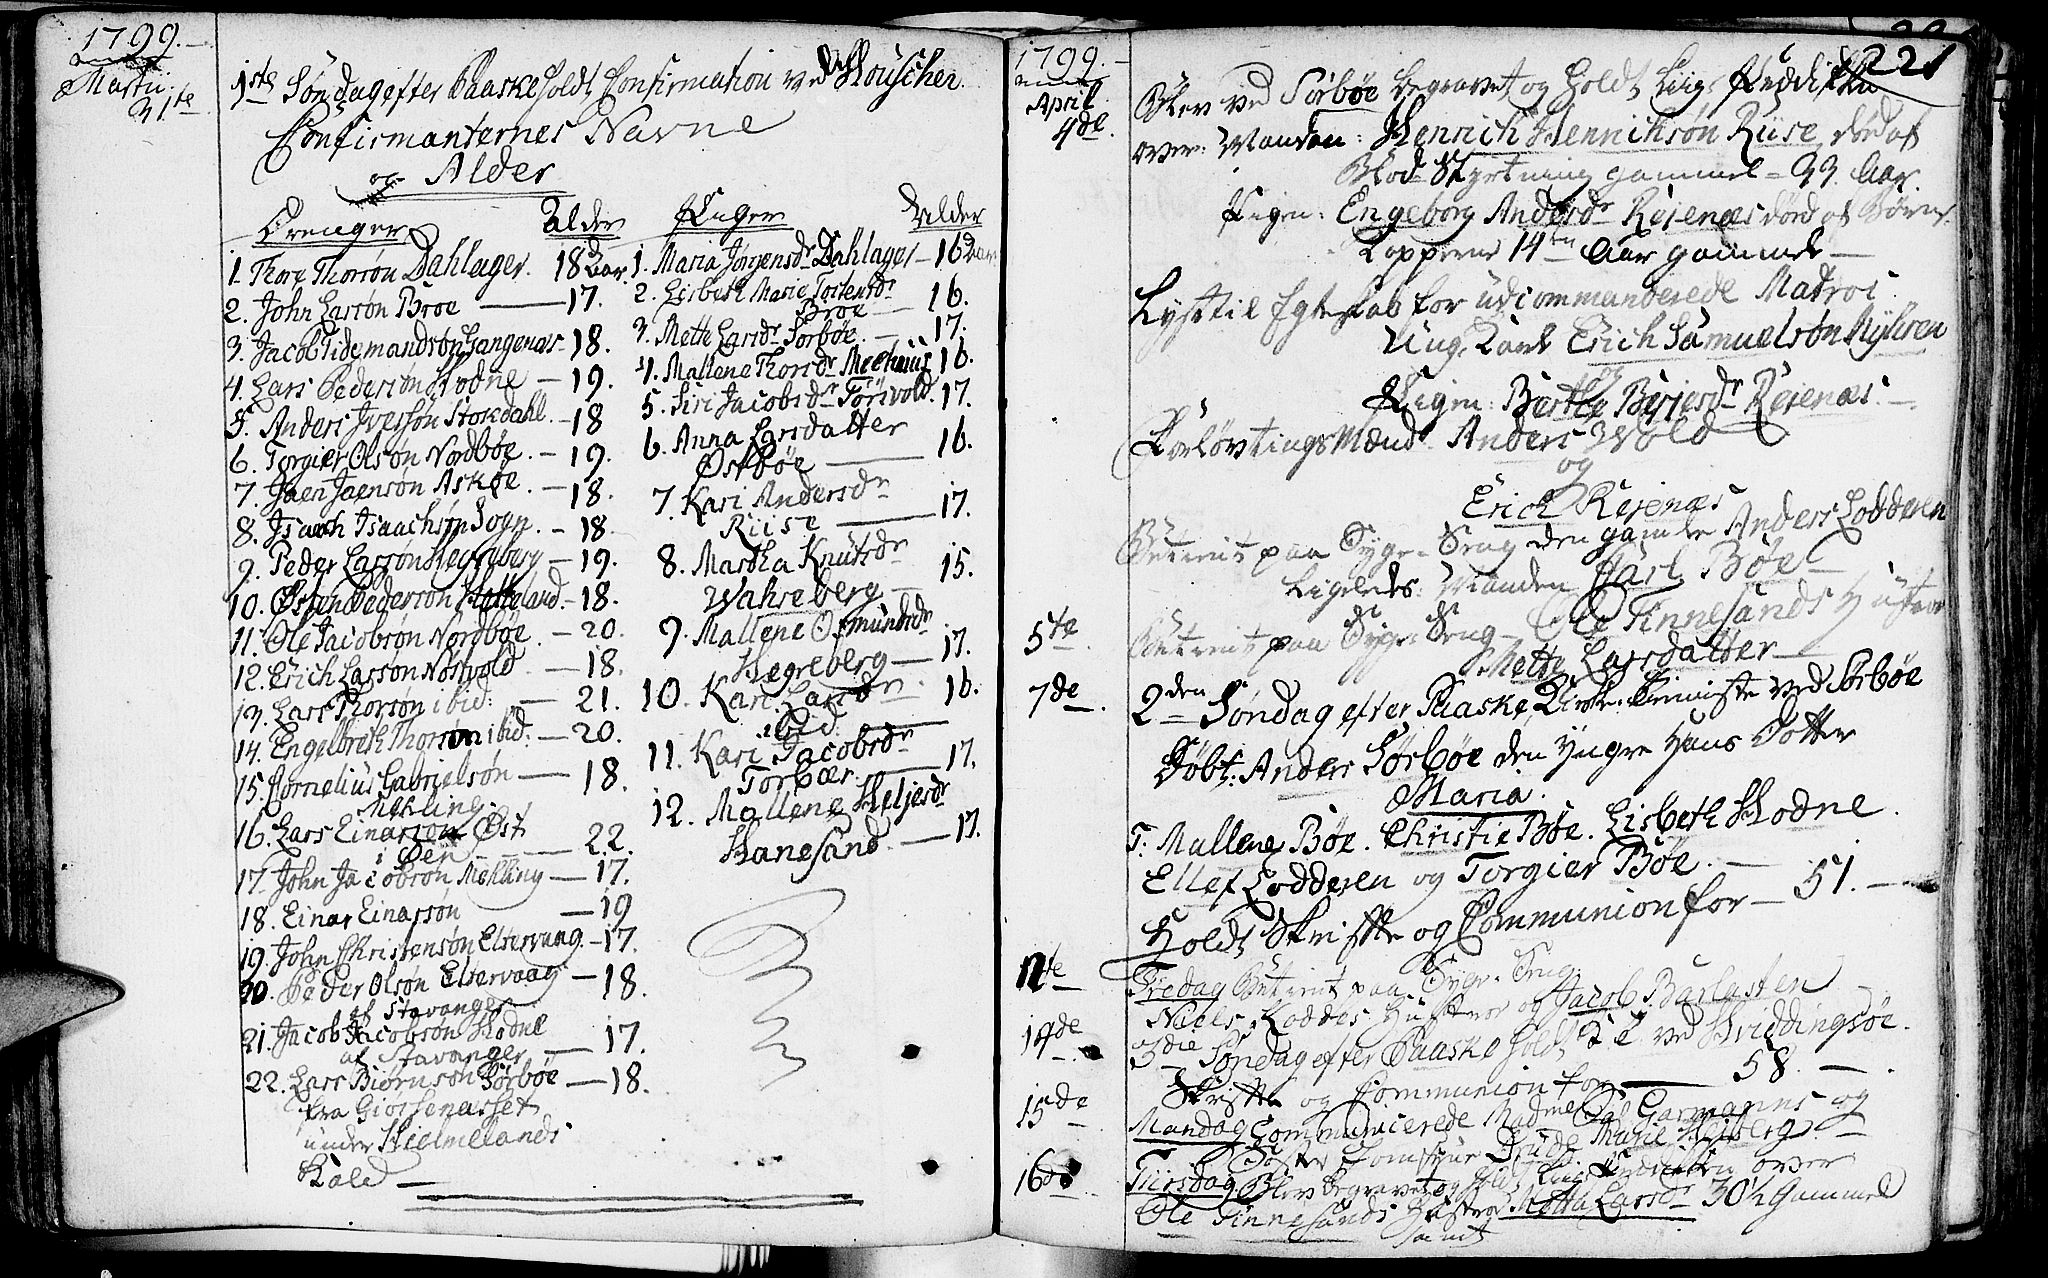 1799.
Martii.
31te
1ste Søndag efter Paaske holdt Confirmation ved Houschen.
Confirmanternes Navne
og Alder
Drenger Alder
1. Thore Thorsøn Dahlager. 18 Aar.
2. John Larsøn Broe — 17.
3. Jacob Tidemandsøn Gangenæs 18.
4. Lars Pedersøn Hodne — 19.
5. Anders Iversøn Stokdahl. — 18
6. Torgier Olsøn Nordbøe. — 19.
7. Jaen Jaensøn Askøe. — 18.
8. Isaach Isaachsøn Sogn. — 18.
9. Peder Larsøn Hegreberg — 19.
10. Østen Pedersøn Hatteland. — 18.
11. Ole Jacobsøn Nordbøe. — 20.
12. Erich Larsøn Norvold — 18.
13. Lars Thorsøn ibid: — 21.
14. Engelbreth Thorsøn ibid: — 20.
15. Cornelius Gabrielsøn — 18.
Mehling.
16. Lars Einarsøn Øst
i Øen — 22.
17. John Jacobsøn Mehling — 17.
18. Einar Einarsøn — 19
19. John Christensøn Eltervaag. — 17.
20. Peder Olsøn Eltervaag — 18.
af Stavanger
21. Jacob Jacobsøn Hodne
af Stavanger — 17.
22. Lars Biørnsøn Sørbøe — 18.
fra Giørsenæsset
under Hielmelands
Kald —
Piger Alder
1. Maria Jørgensdr Dahlager — 16 Aar.
2. Lisbeth Marie Torsensdr
Broe — 16.
3. Mette Larsdr Sørbøe. — 17.
4. Mallene Thorsdr 16.
5. Siri Jacobsdr Torsvold. 17.
6. Anna Larsdatter
Østbøe — 16.
7. Kari Andersdr
Riise — 17.
8. Martha Knutsdr
Wahreberg — 15.
9. Mallene Osmundsdr
Hegreberg — 17.
10. Kari Larsdr 16.
ibid.
11. Kari Jacobsdr
Torbær. — 17.
12. Mallene Heljesdr
Hanesand. — 17.
221
1799.
April
4de.
Blev ved Sørbøe begravet og holdt Liig-Prædiken
over: Manden: Henrich Henrichsøn Riise, død af
Blod-Styrtning gammel = 33. Aar.
Pigen: Engeborg Andersdr Reienæs død af Børne
Kopperne 14ten Aar gammel —
Lyst til Egteskab for udcommanderede Matros
Ung Karl Erich Samuelsøn
og
Pigen: Berthe Berjesdr Reienæs. —
Forløvtings Mænd Anders Wold
og
Erich Reienæs
Betient paa Syge-Seng den gamle Anders Lodderen
Ligeledes: Manden Karl Bøe
5te.
Betient paa Syge-Seng Ole Finnesands Hustroe
Mette Larsdatter —
7de.
2den Søndag efter Paaske Kirke-Tieniste ved Sørbøe
Døbt: Anders Sørbøe den Yngre Hans Dotter
Maria.
T: Mallene Bøe. Christie Bøe. Lisbeth Hodne.
Ellef Lodderen og Torgier Bøe. —
Holdt Skrifte og Communion for — 51. —
12te
Fredag Betient paa Syge-Seng
Niels Loddes Hustroe og Jacob Barlasten
14de
3die Søndag efter Paaske holdt T.E. ved Hviddingsøe.
Skrifte og Communion for — 58. —
15de
Mandag Communicerede Madme Garmanns og
Søster Jomfrue Drude Marie Heiberg. —
16de
Tiirsdag Blev begravet og holdt Liig-Prædiken over
Ole Finnesands Hustroe Mette Larsdr 30 1/2 Gammel
samt